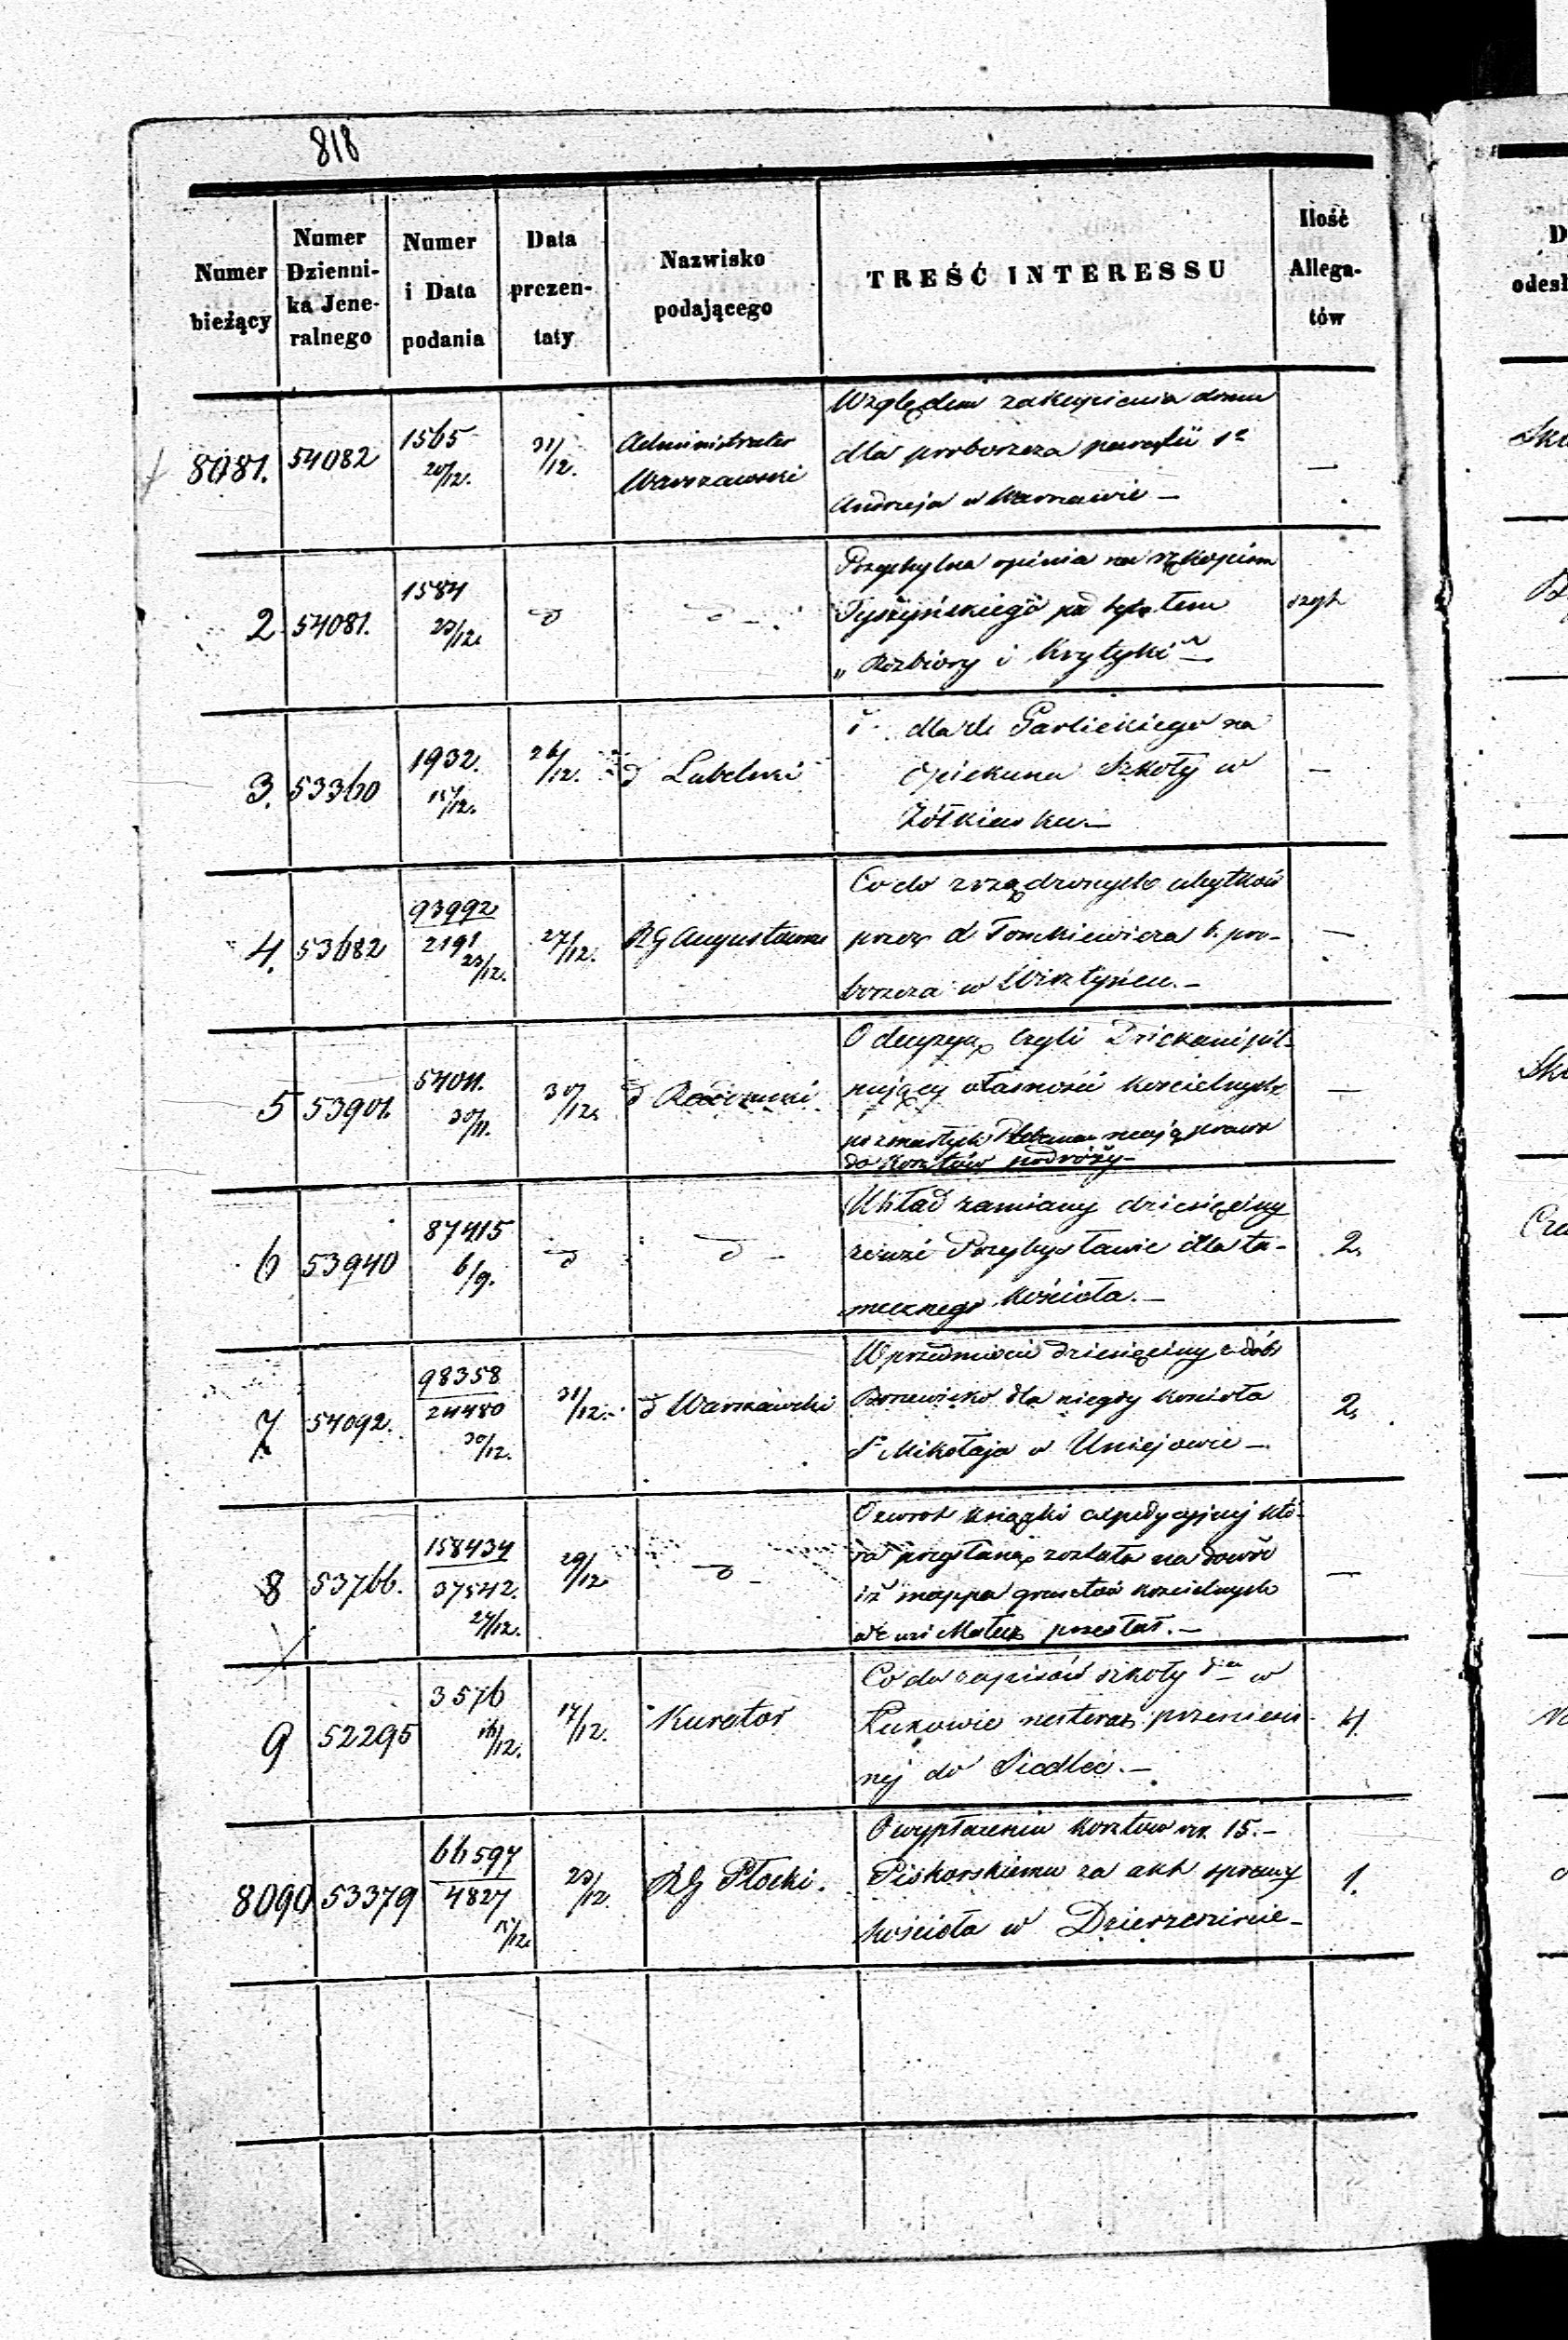 818
Numer bieżący
Numer Dzienni-ka Jene-ralnego
Numer i Data podania
Data prezen-taty
Nazwisko podającego
TREŚĆ INTERESSU
Ilość Allega-tów
D
odesł
8081. 54082 1565 20/12. 31/12. Administrator Warszawski
Względem zakupienia domu
dla proboszcza parafii Sgo
Andrzeja w Warszawie —
2 54081. 1584 23/12. d d szyt
Przychylna opinia na rękopism
Tyszyńskiego pod tytułem
„Rozbiory i Krytyki" —
3. 53360 1932. 15/12. 26/12. d Lubelski —
dla Garlickiego na
Opiekuna Szkoły w
Żółkiewku —
4. 53682 93992 2191 23/12. 27/12. RG Augustowski —
Co do zrządzonych ubytków
przez d Tomkiewicza b. pro-
boszcza w Wisztyńcu. —
5 53901. 54011. 30/11. 30/12. d Radomski —
O decyzyą czyli Dziekani pil-
nujący własności kościelnych
po zmarłych Plebanach mają prawo
do kosztów podróży —
6 53940 87415 6/9. d d 2.
Układ zamiany dziesięciny
ze wsi Przybysławic dla ta-
mecznego Kościoła. —
7. 54092. 98358 24480 30/12. 31/12. d Warszawski 2.
W przedmiocie dziesięciny z dóbr
dla niegdy kościoła
S. Mikołaja w Uniejowie —
8 53766. 158434 37542. 24/12. 29/12 d —
O zwrot książki expedycyjnej któ-
ra przysłaną została na dowód
iż mappa gruntów kościelnych
przesłał. —
9 52295 3576 16/12. 17/12. Kurator 4
Co do zapisów szkoły w
Łukowie nateraz przeniesio-
nej do Siedlec. —
8090 53379 66597 4827 15/12. 23/12. RG Płocki. 1.
O wypłacenie kosztów rs. 15. —
Piskorskiemu za akt sprawy
kościoła w Dzierzeninie —